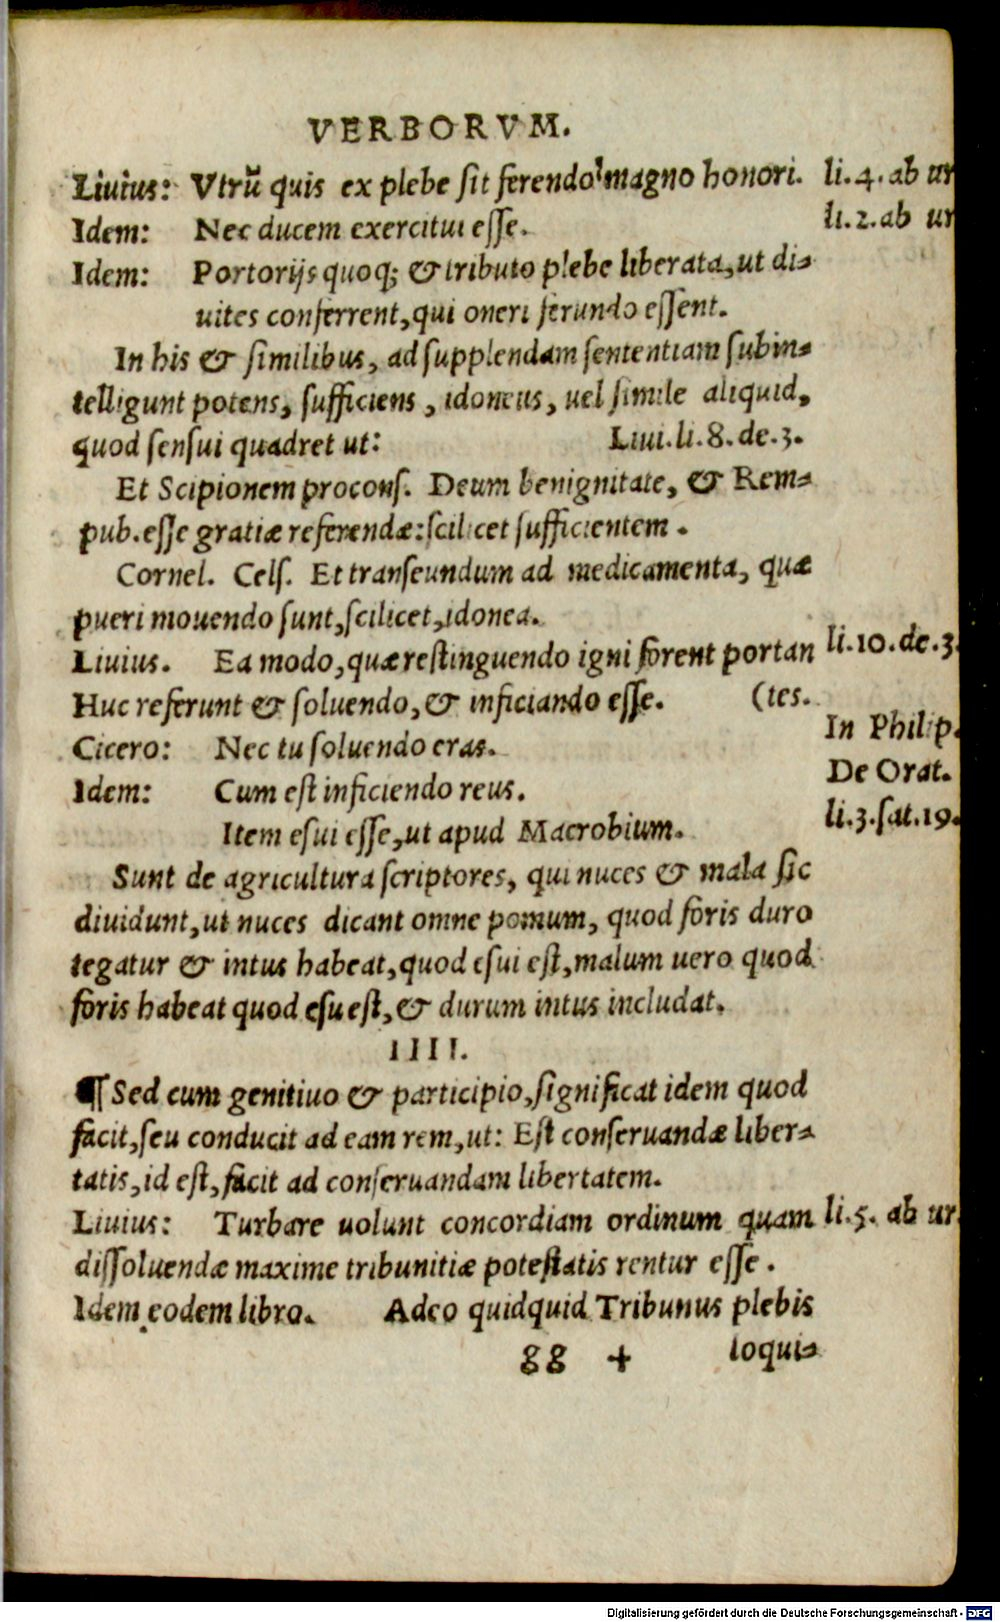 VERBORVM.
Liuius: Vtrũ quis ex plebe sit ferendo magno honori. li.4.ab ur
Idem: Nec ducem exercitui esse. li.2.ab ur
Idem: Portorijs quoq; & tributo plebe liberata, ut di-
uites conferrent, qui oneri ferundo essent.
In his & similibus, ad supplendam sententiam subin-
telligunt potens, sufficiens, idoneus, uel simile aliquid,
quod sensui quadret ut: Liui.li.8.de.3.
Et Scipionem procons. Deum benignitate, & Rem-
pub. esse gratiæ referendæ: scilicet sufficientem.
Cornel. Cels. Et transeundum ad medicamenta, quæ
pueri mouendo sunt, scilicet, idonea.
Liuius. Ea modo, quæ restinguendo igni forent portan li.10.de.3.
Huc referunt & soluendo, & inficiando esse. (tes.
Cicero: Nec tu soluendo eras. In Philip.
Idem: Cum est inficiendo reus. De Orat.
Item esui esse, ut apud Macrobium. li.3.sat.19.
Sunt de agricultura scriptores, qui nuces & mala sic
diuidunt, ut nuces dicant omne pomum, quod foris duro
tegatur & intus habeat, quod esui est, malum uero quod
foris habeat quod esu est, & durum intus includat.
IIII.
¶ Sed cum genitiuo & participio, significat idem quod
facit, seu conducit ad eam rem, ut: Est conseruandæ liber-
tatis, id est, facit ad conseruandam libertatem.
Liuius: Turbare uolunt concordiam ordinum quam li.5. ab ur.
dissoluendæ maxime tribunitiæ potestatis rentur esse.
Idem eodem libro. Adeo quidquid Tribunus plebis
gg + loqui-
Digitalisierung gefördert durch die Deutsche Forschungsgemeinschaft - DFG